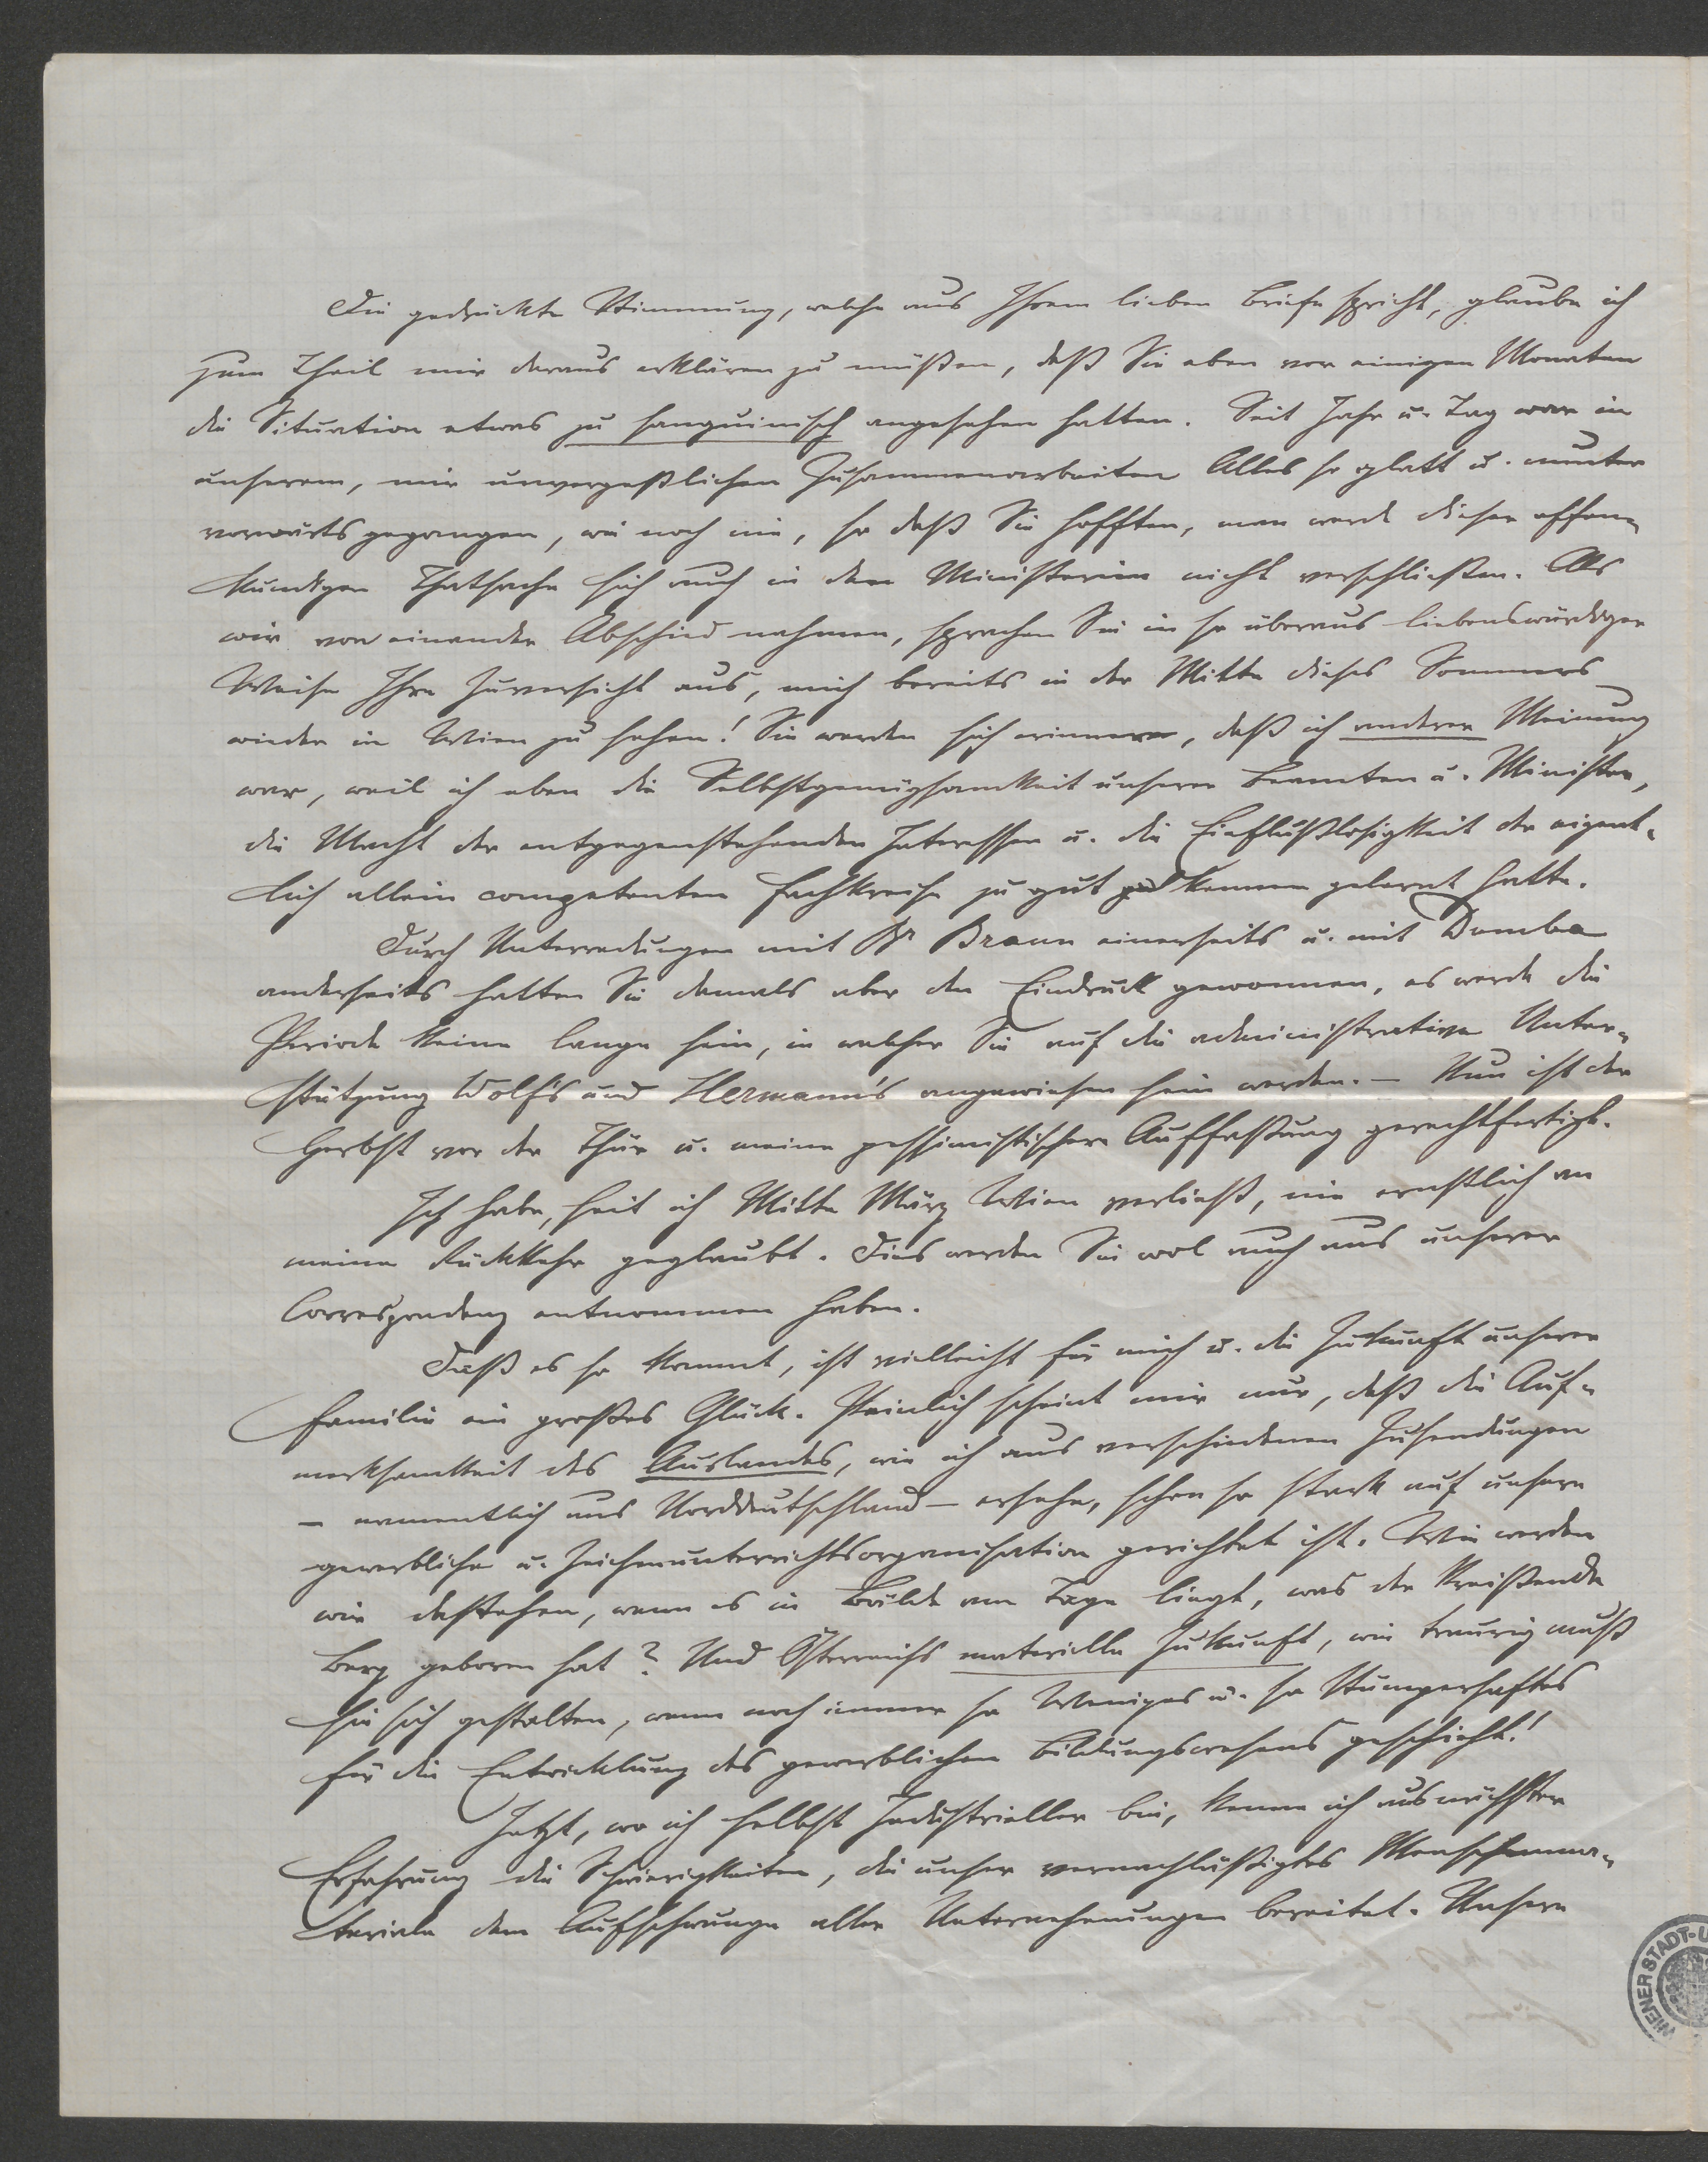 Die gedrückte Stimmung, welche aus Ihrem lieben Briefe spricht, glaube ich
zum Theil mir daraus erklären zu müßen, daß Sie eben vor einigen Monaten
die Situation etwas zu sanguinisch angesehen hatten. Seit Jahr u. Tag war in
unserem, mir unvergeßlichen Zusammenarbeiten Alles so glatt u. munter
vorwärts gegangen, wie noch nie, so daß Sie hofften, man werde dieser offen-
kundigen Thatsache sich auch in dem Ministerium nicht verschließen. Als
wir von einander Abschied nahmen, sprachen Sie in so überaus liebenswürdiger
Weise Ihre Zuversicht aus, mich bereits in der Mitte dieses Sommers
wieder in Wien zu sehen! Sie werden sich erinnern, daß ich anderer Meinung
war, weil ich eben die Selbstgenügsamkeit unserer Beamten u. Minister,
die Macht der entgegenstehenden Interessen u. die Einflußlosigkeit der eigent-
lich allein competenten Fachkreise zu gut kennen gelernt hatte.
Durch Unterredungen mit Br Braun einerseits u. mit Dumba
anderseits hatten Sie damals aber den Eindruck gewonnen, es werde die
Periode keine lange sein, in welcher Sie auf die administrative Unter-
stützung Wolf's und Hermann's angewiesen sein werden. — Nun ist der
Herbst vor der Thür u. meine pessimistischere Auffaßung gerechtfertigt.
Ich habe, seit ich Mitte März Wien verließ, nie ernstlich an
meine Rückkehr geglaubt. Dies werden Sie wol auch aus unserer
Correspondenz entnommen haben.
Daß es so kommt, ist vielleicht für mich u. die Zukunft unserer
Familie ein großes Glück. Peinlich scheint mir nur, daß die Auf-
merksamkeit des Auslandes, wie ich aus verschiedenen Zusendungen
— namentlich aus Norddeutschland — ersehe, schon so stark auf unsere
gewerbliche u. Zeichenunterrichtsorganisation gerichtet ist. Wie werden
wir dastehen, wenn es in Bälde am Tage liegt, was der kreißende
Berg geboren hat? Und Österreichs materielle Zukunft, wie traurig muß
sie sich gestalten, wenn noch immer so Weniges u. so Stümperhaftes
für die Entwicklung des gewerblichen Bildungswesens geschieht!
Jetzt, wo ich selbst Industrieller bin, kenne ich aus nächster
Erfahrung die Schwierigkeiten, die unser vernachläßigtes Menschenma-
teriale dem Aufschwunge aller Unternehmungen bereitet. Unsere
WIENER STADT-